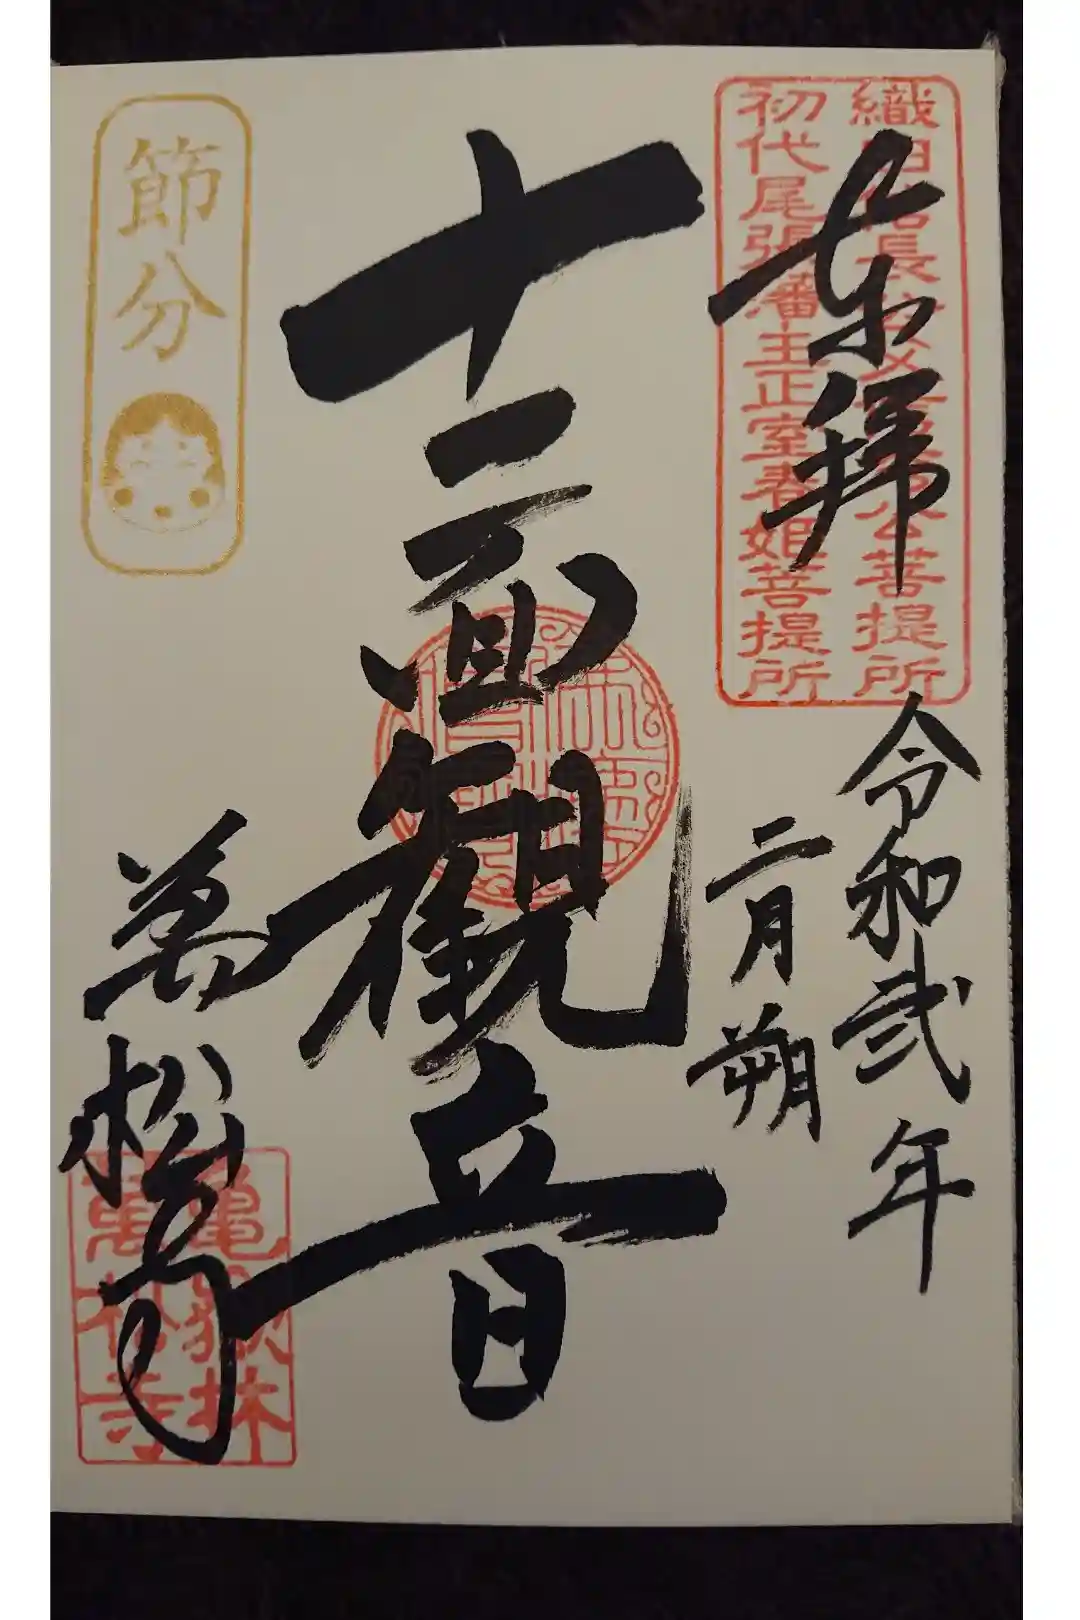 奉拝
織田信長公父君信秀公菩提所
初代尾張藩主正室春姫菩提所
令和弐年
二月朔
十一面観音
節分
萬松寺
亀嶽林
萬松寺